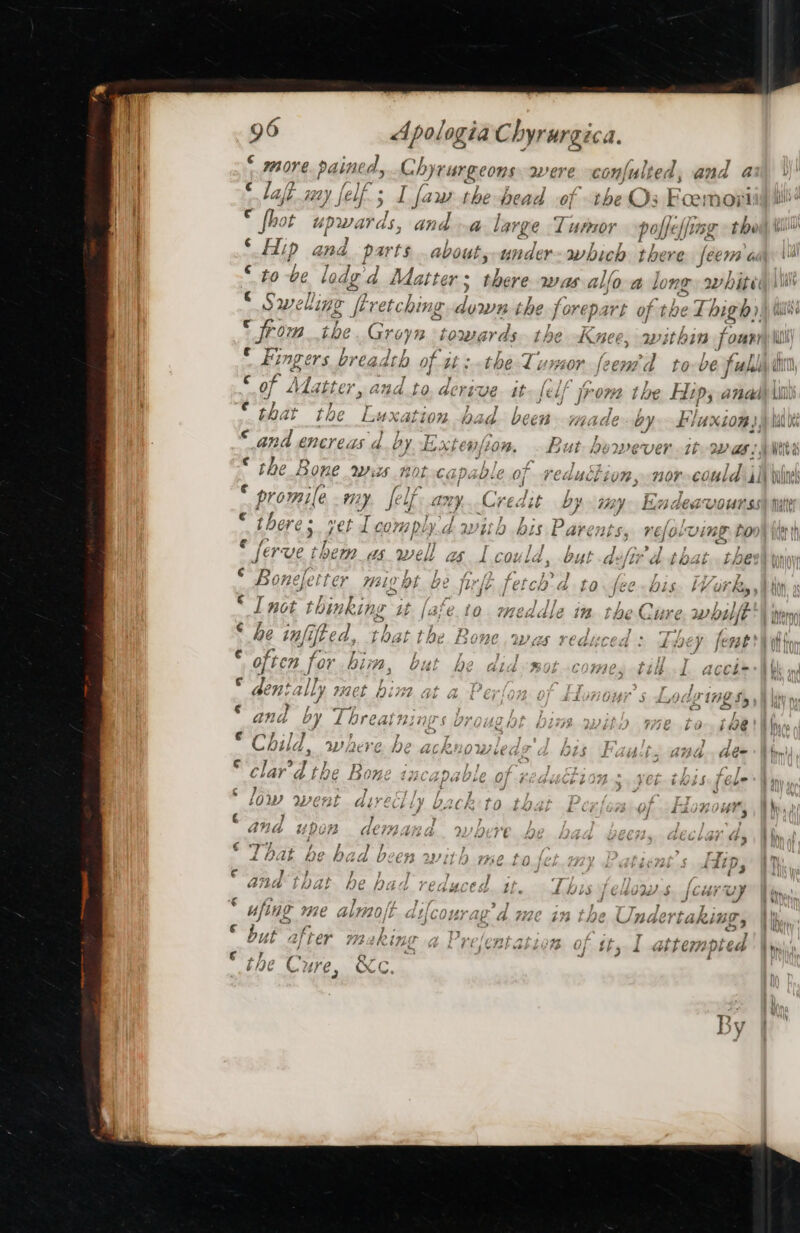 96 Apologia Chyrurgica.
‘ more pained, Chyrurgeons were conſulted, and at
‘ laſt my ſelf ; I ſaw the head of the Os Fœmoris
‘ ſhot upwards, and a large Tumor poſſeſſing the
‘ Hip and parts about, under which there ſeem'd
‘ to be lodg'd Matter ; there was alſo a long white
‘ Swelling ſtretching down the forepart of the Thigh,
‘ from the Groyn towards the Knee, within four
‘ Fingers breadth of it : the Tumor ſeem'd to be full
‘ of Matter, and to derive it ſelf from the Hip, and
‘ that the Luxation had been made by Fluxion,
‘ and encreas'd by Extenſion. But however it was,
‘ the Bone was not capable of reduction, nor could I
‘ promiſe my ſelf any Credit by my Endeavours
‘ there ; yet I comply'd with his Parents, reſolving to
‘ ſerve them as well as I could, but deſir'd that the
‘ Boneſetter might be firſt fetch'd to ſee his Work,
‘ I not thinking it ſafe to meddle in the Cure whilſt
‘ he inſiſted, that the Bone was reduced : They ſent
‘ often for him, but he did not come, till I acci-
‘ dentally met him at a Perſon of Honour's Lodgings,
‘ and by Threatnings brought him with me to the
‘ Child, where he acknowledg'd his Fault, and de-
‘ clar'd the Bone incapable of reduction ; yet this fel-
‘ low went directly back to that Perſon of Honour,
‘ and upon demand where he had been, declar'd,
‘ That he had been with me to ſet my Patient's Hip,
‘ and that he had reduced it. This fellows ſcurvy
‘ uſing me almoſt diſcourag'd me in the Undertaking,
‘ but after making a Preſentation of it, I attempted
‘ the Cure, &c.
By